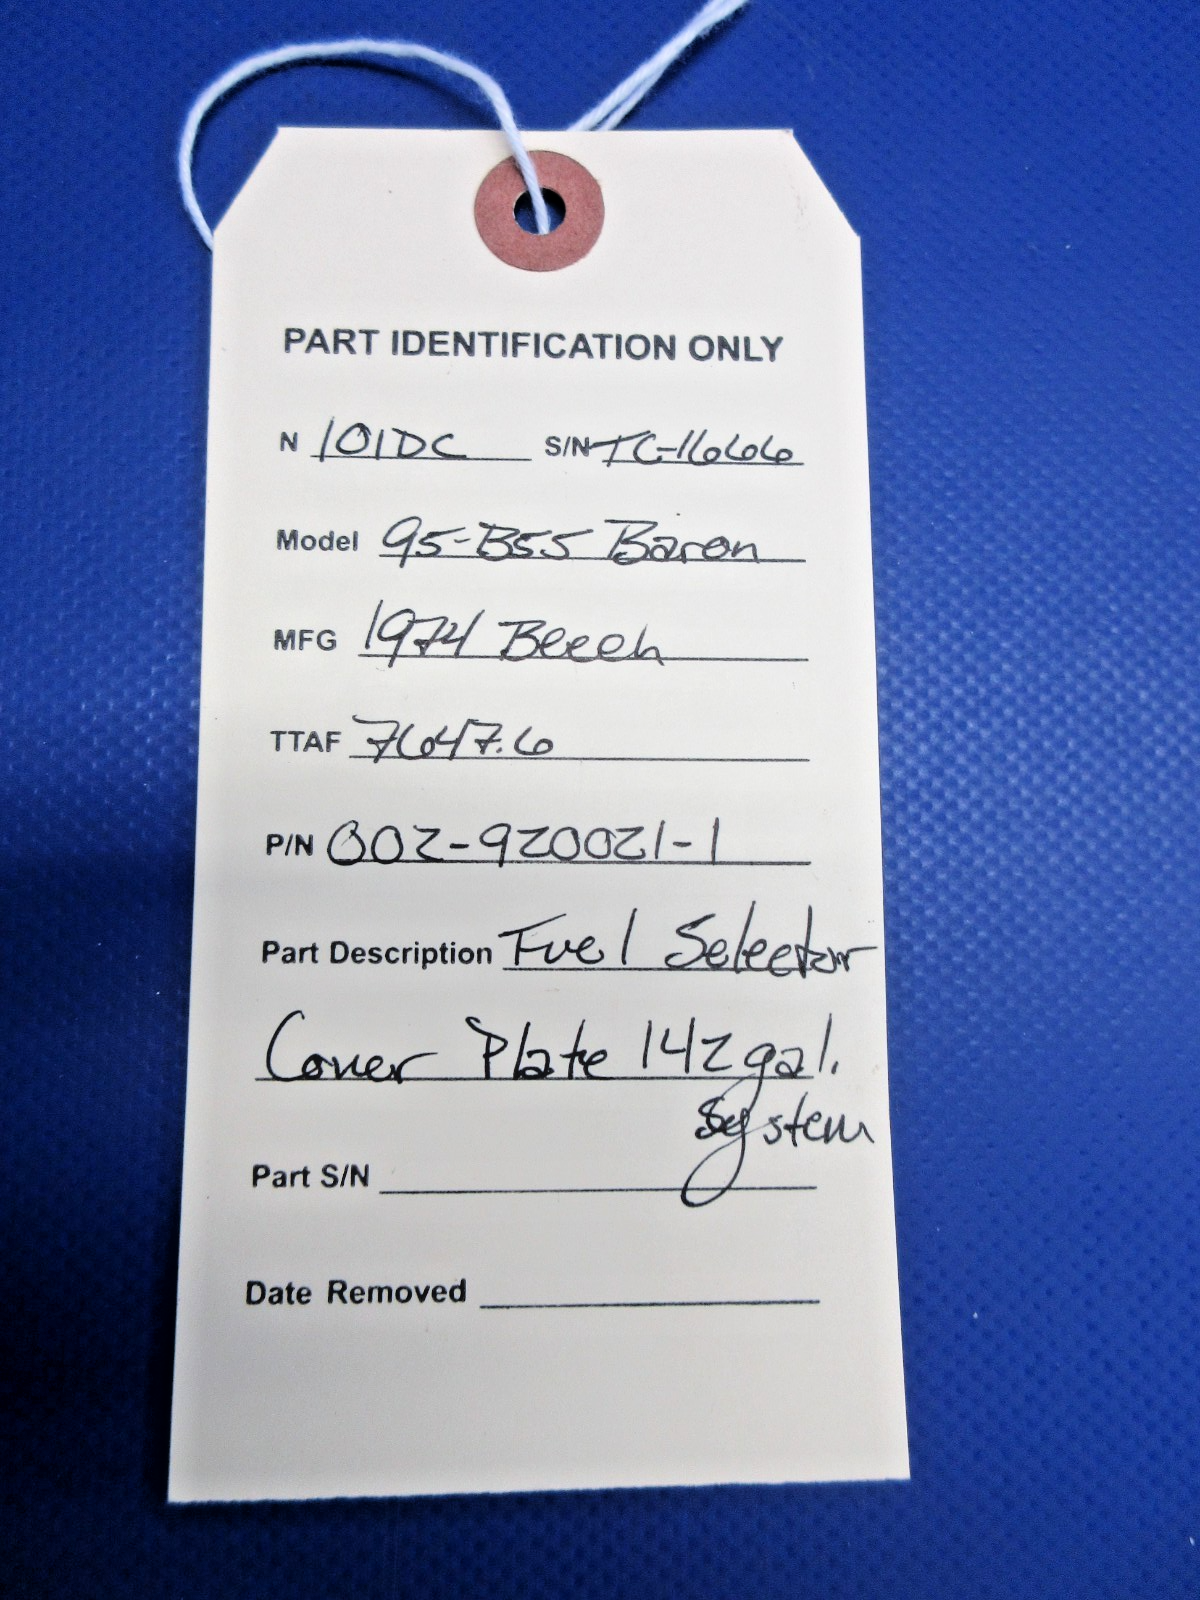 PART IDENTIFICATION ONLY
N 101DC S/N TC-1666
Model 95-B55 Baron
MFG 1974 Beech
TTAF 7647.6
P/N 002-920021-1
Part Description Fuel Selector
Cover Plate 142 gal.
System
Part S/N
Date Removed